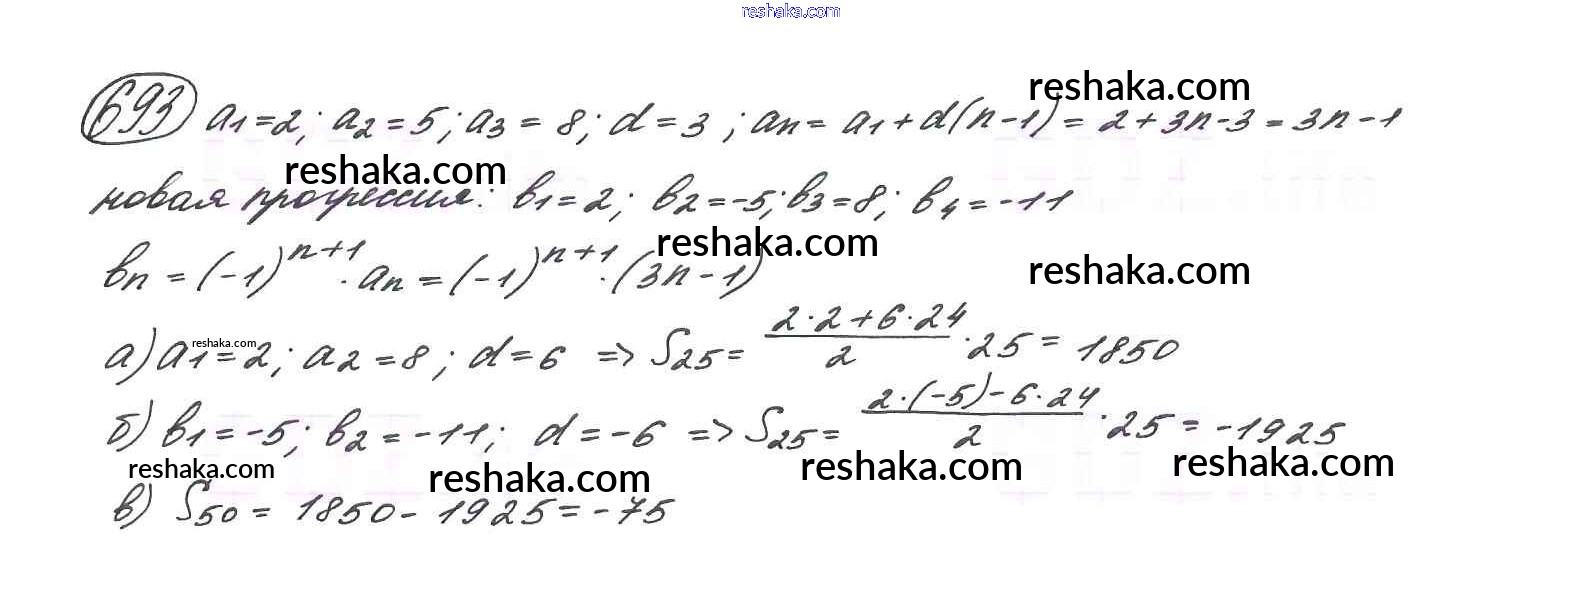 reshaka.com
693 a₁=2; a₂=5; a₃=8; d=3; aₙ= a₁+d(n-1)= 2+3n-3=3n-1
reshaka.com
reshaka.com
новая прогрессия: в₁=2; в₂=-5; в₃=8; в₄=-11
вₙ=(-1)ⁿ⁺¹·aₙ=(-1)ⁿ⁺¹·(3n-1)
reshaka.com
reshaka.com
а) a₁=2; a₂=8; d=6 => S₂₅= (2·2+6·24)/2 ·25= 1850
reshaka.com
б) в₁=-5; в₂=-11; d=-6 => S₂₅= (2·(-5)-6·24)/2 ·25=-1925
reshaka.com
reshaka.com
reshaka.com
reshaka.com
в) S₅₀= 1850-1925=-75